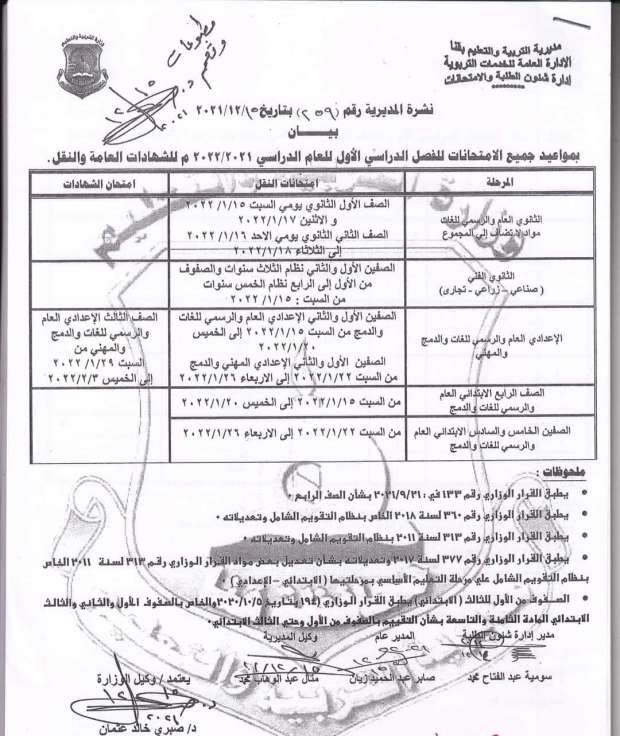 مديرية التربية والتعليم بقنا
الادارة العامة للخدمات التربوية
إدارة شئون الطلبة والامتحانات
نشرة المديرية رقم (٢٥٩) بتاريخ ٢٠٢١/١٢/١٥
بيـــــان
بمواعيد جميع الامتحانات للفصل الدراسي الأول للعام الدراسي ٢٠٢٢/٢٠٢١ م للشهادات العامة والنقل.
المرحلة
امتحانات النقل
امتحان الشهادات
الثانوي العام والرسمي للغات
مواد لا تضاف إلى المجموع
الصف الأول الثانوي يومي السبت ١٥ /١/ ٢٠٢٢
و الاثنين ٢٠٢٢/١/١٧
الصف الثاني الثانوي يومي الاحد ١٦ /١/ ٢٠٢٢
إلى الثلاثاء ٢٠٢٢/١/١٨
الثانوي الفني
( صناعي – زراعي – تجارى )
الصفين الأول والثاني نظام الثلاث سنوات والصفوف
من الأول إلى الرابع نظام الخمس سنوات
من السبت : ١٥ /١/ ٢٠٢٢
الإعدادي العام والرسمي للغات والدمج
والمهني
الصفين الأول والثاني الإعدادي العام والرسمي للغات
والدمج من السبت ٢٠٢٢/١/١٥ إلى الخميس
٢٠٢٢/١/٢٠
الصفين الأول والثاني الإعدادي المهني والدمج
من السبت ٢٠٢٢/١/٢٢ إلى الاربعاء ٢٠٢٢/١/٢٦
الصف الثالث الإعدادي العام
والرسمي للغات والدمج
والمهني من
السبت ٢٩ /١/ ٢٠٢٢
إلى الخميس ٢٠٢٢/٢/٣
الصف الرابع الابتدائي العام
والرسمي للغات والدمج
من السبت ٢٠٢٢/١/١٥ إلى الخميس ٢٠٢٢/١/٢٠
الصفين الخامس والسادس الابتدائي العام
والرسمي للغات والدمج
من السبت ٢٠٢٢/١/٢٢ إلى الاربعاء ٢٠٢٢/١/٢٦
ملحوظات :
• يطبق القرار الوزاري رقم ١٣٣ في : ٢٠٢١/٩/٢١ بشأن الصف الرابع .
• يطبق القرار الوزاري رقم ٣٦٠ لسنة ٢٠١٨ الخاص بنظام التقويم الشامل وتعديلاته .
• يطبق القرار الوزاري رقم ٣١٣ لسنة ٢٠١١ بنظام التقويم الشامل وتعديلاته .
• يطبق القرار الوزاري رقم ٣٧٧ لسنة ٢٠١٧ وتعديلاته بشأن تعديل بعض مواد القرار الوزاري رقم ٣١٣ لسنة ٢٠١١ الخاص
بنظام التقويم الشامل علي مرحلة التعليم الأساسي بمرحلتيها ( الابتدائي – الإعدادي )
• الصفوف من الأول للثالث ( الابتدائي) يطبق القرار الوزاري (١٩٤) بتاريخ ٢٠٢٠/١٠/٥ والخاص بالصفوف الأول والثاني والثالث
الابتدائي المادة الثامنة والتاسعة بشأن التقييم بالصفوف من الأول وحتي الثالث الابتدائي .
مدير إدارة شئون الطلبة
المدير عام
وكيل المديرية
سومية عبد الفتاح محمد
صابر عبد الحميد زيان
منال عبد الوهاب محمد
يعتمد / وكيل الوزارة
د/ صبري خالد عثمان